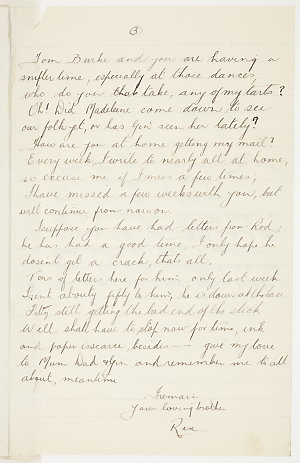 3
Tom Burke and you are having a
snifter time, especially at those dances,
who do you that take, any of my tarts?
Oh! Did Madelane come down to see
our folk yet, or has Gin seen her lately?
How are you at home getting my mail?
Every week I write to nearly all at home,
so excuse me if I miss a few times;
I have missed a few weeks with you, but
will continue from now on.
I suppose you have had letters from Rod;
he has had a good time, I only hope he
dosent get a crack, thats all.
Tons of letters here for him only last week
I sent about fifty to him, he is down at
Fitz still getting the bad end of the stick
Well shall have to stop now for time, ink
and paper is scarce, besides — give my love
to Mum Dad & Gin and remember me to all
about, meantime
I remain
Your loving brother
Rex